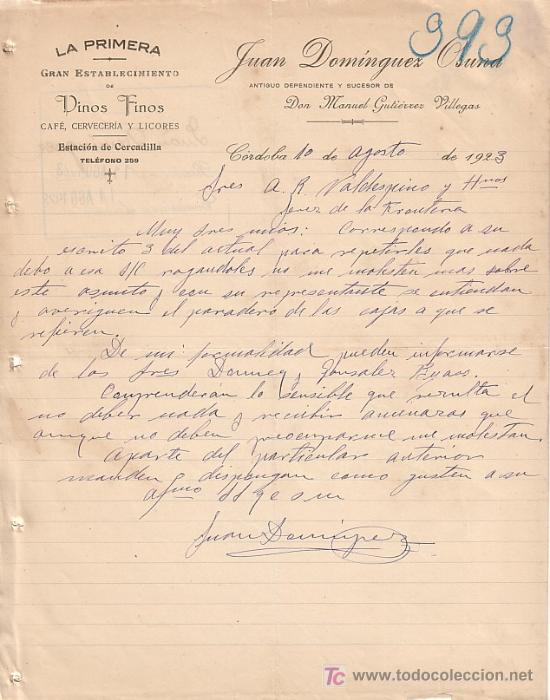 393
LA PRIMERA
GRAN ESTABLECIMIENTO
DE
Vinos Finos
CAFÉ, CERVECERÍA Y LICORES
Estación de Cercadilla
TELÉFONO 259
Juan Domínguez Osuna
ANTIGUO DEPENDIENTE Y SUCESOR DE
Don Manuel Gutiérrez Villegas
Córdoba 10 de agosto de 1923
Sres A. R. Valdespino y Hnos
Jerez de la Frontera
Muy Sres mios: Correspondo a su
escrito 3 del actual para repetirles que nada
debo a esa S/C rogandoles no me molesten mas sobre
este asunto y con su representante se entiendan
y averiguen el paradero de las cajas a que se
refieren.
De mi formalidad pueden informarse
de los Sres Domecq y Gonzalez Byass.
Comprenderán lo sensible que resulta el
no deber nada y recibir amenazas que
aunque no deben preocuparme me molestan.
Aparte del particular anterior
manden y dispongan como gusten a su
afmo SS q e s m
Juan Domínguez
TC www.todocoleccion.net